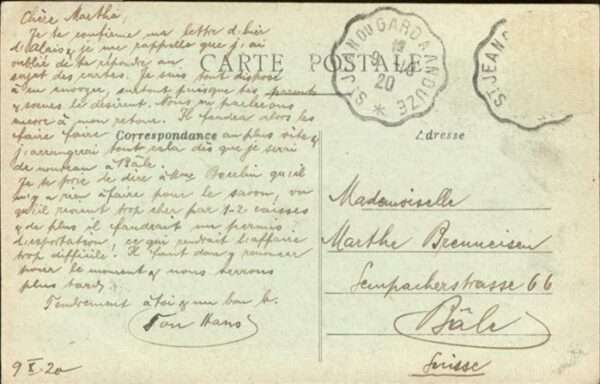 Chère Marthe,
Je te confirme ma lettre d'hier
d'Alais, & je me rappelle que j'ai
oublié de te répondre au
sujet des cartes. Je suis tout disposé
à en envoyer, surtout puisque tes parents
& soeurs le désirent. Nous en parlerons
encore à mon retour. Il faudra alors les
faire faire au plus vite &
j'arrangerai tout cela dès que je serai
de nouveau à Bâle.
Je te prie de dire à Mme qu'il
n'y a rien à faire pour le savon, vu
qu'il revient trop cher par 1-2 caisses
& de plus il faudrait un permis
d'exportation, ce qui rendrait l'affaire
trop difficile! Il faut donc y renoncer
pour le moment & nous verrons
plus tard.
Tendrement à toi & un bon b.
Ton Hans
9 X 20
CARTE POSTALE
Correspondance
Adresse
ST JEAN DU GARD A ANDUZE
9 10
20
ST JEAN D
Mademoiselle
Marthe
Sempacherstrasse 66
Bâle
Suisse